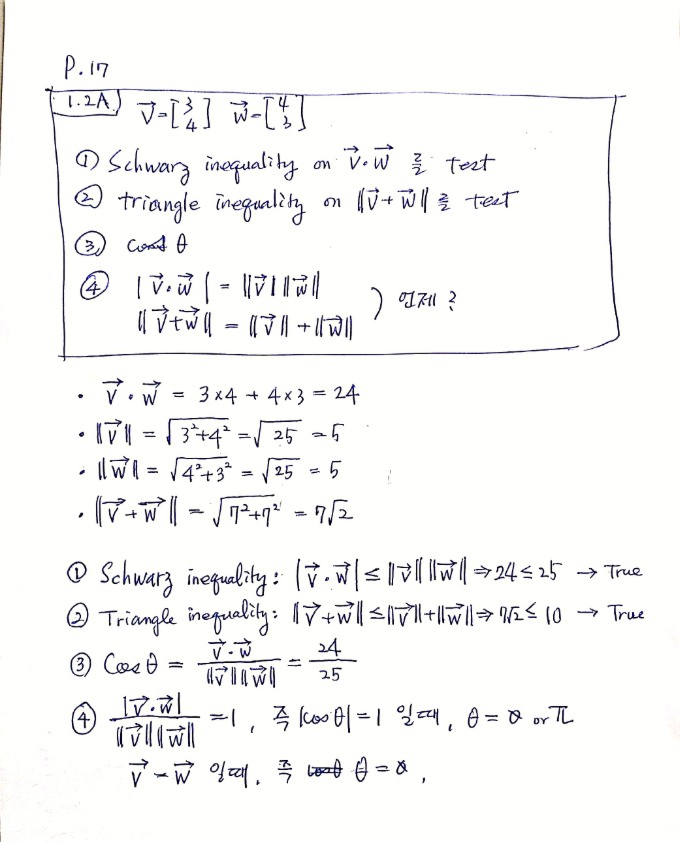 P.17
1.2A) v⃗=[3 4] w⃗=[4 3]
① Schwarz inequality on v⃗·w⃗ 를 test
② triangle inequality on ‖v⃗+w⃗‖ 를 test
③ cos θ
④ |v⃗·w⃗| = ‖v⃗‖‖w⃗‖
‖v⃗+w⃗‖ = ‖v⃗‖+‖w⃗‖ ) 언제?
· v⃗·w⃗ = 3×4 + 4×3 = 24
· ‖v⃗‖ = √(3²+4²) = √25 = 5
· ‖w⃗‖ = √(4²+3²) = √25 = 5
· ‖v⃗+w⃗‖ = √(7²+7²) = 7√2
① Schwarz inequality: |v⃗·w⃗| ≤ ‖v⃗‖‖w⃗‖ ⇒ 24 ≤ 25 → True
② Triangle inequality: ‖v⃗+w⃗‖ ≤ ‖v⃗‖+‖w⃗‖ ⇒ 7√2 ≤ 10 → True
③ Cos θ = v⃗·w⃗ / ‖v⃗‖‖w⃗‖ = 24/25
④ |v⃗·w⃗| / ‖v⃗‖‖w⃗‖ = 1, 즉 |cos θ| = 1 일때, θ = 0 or π
v⃗ = w⃗ 일때, 즉 θ = 0,